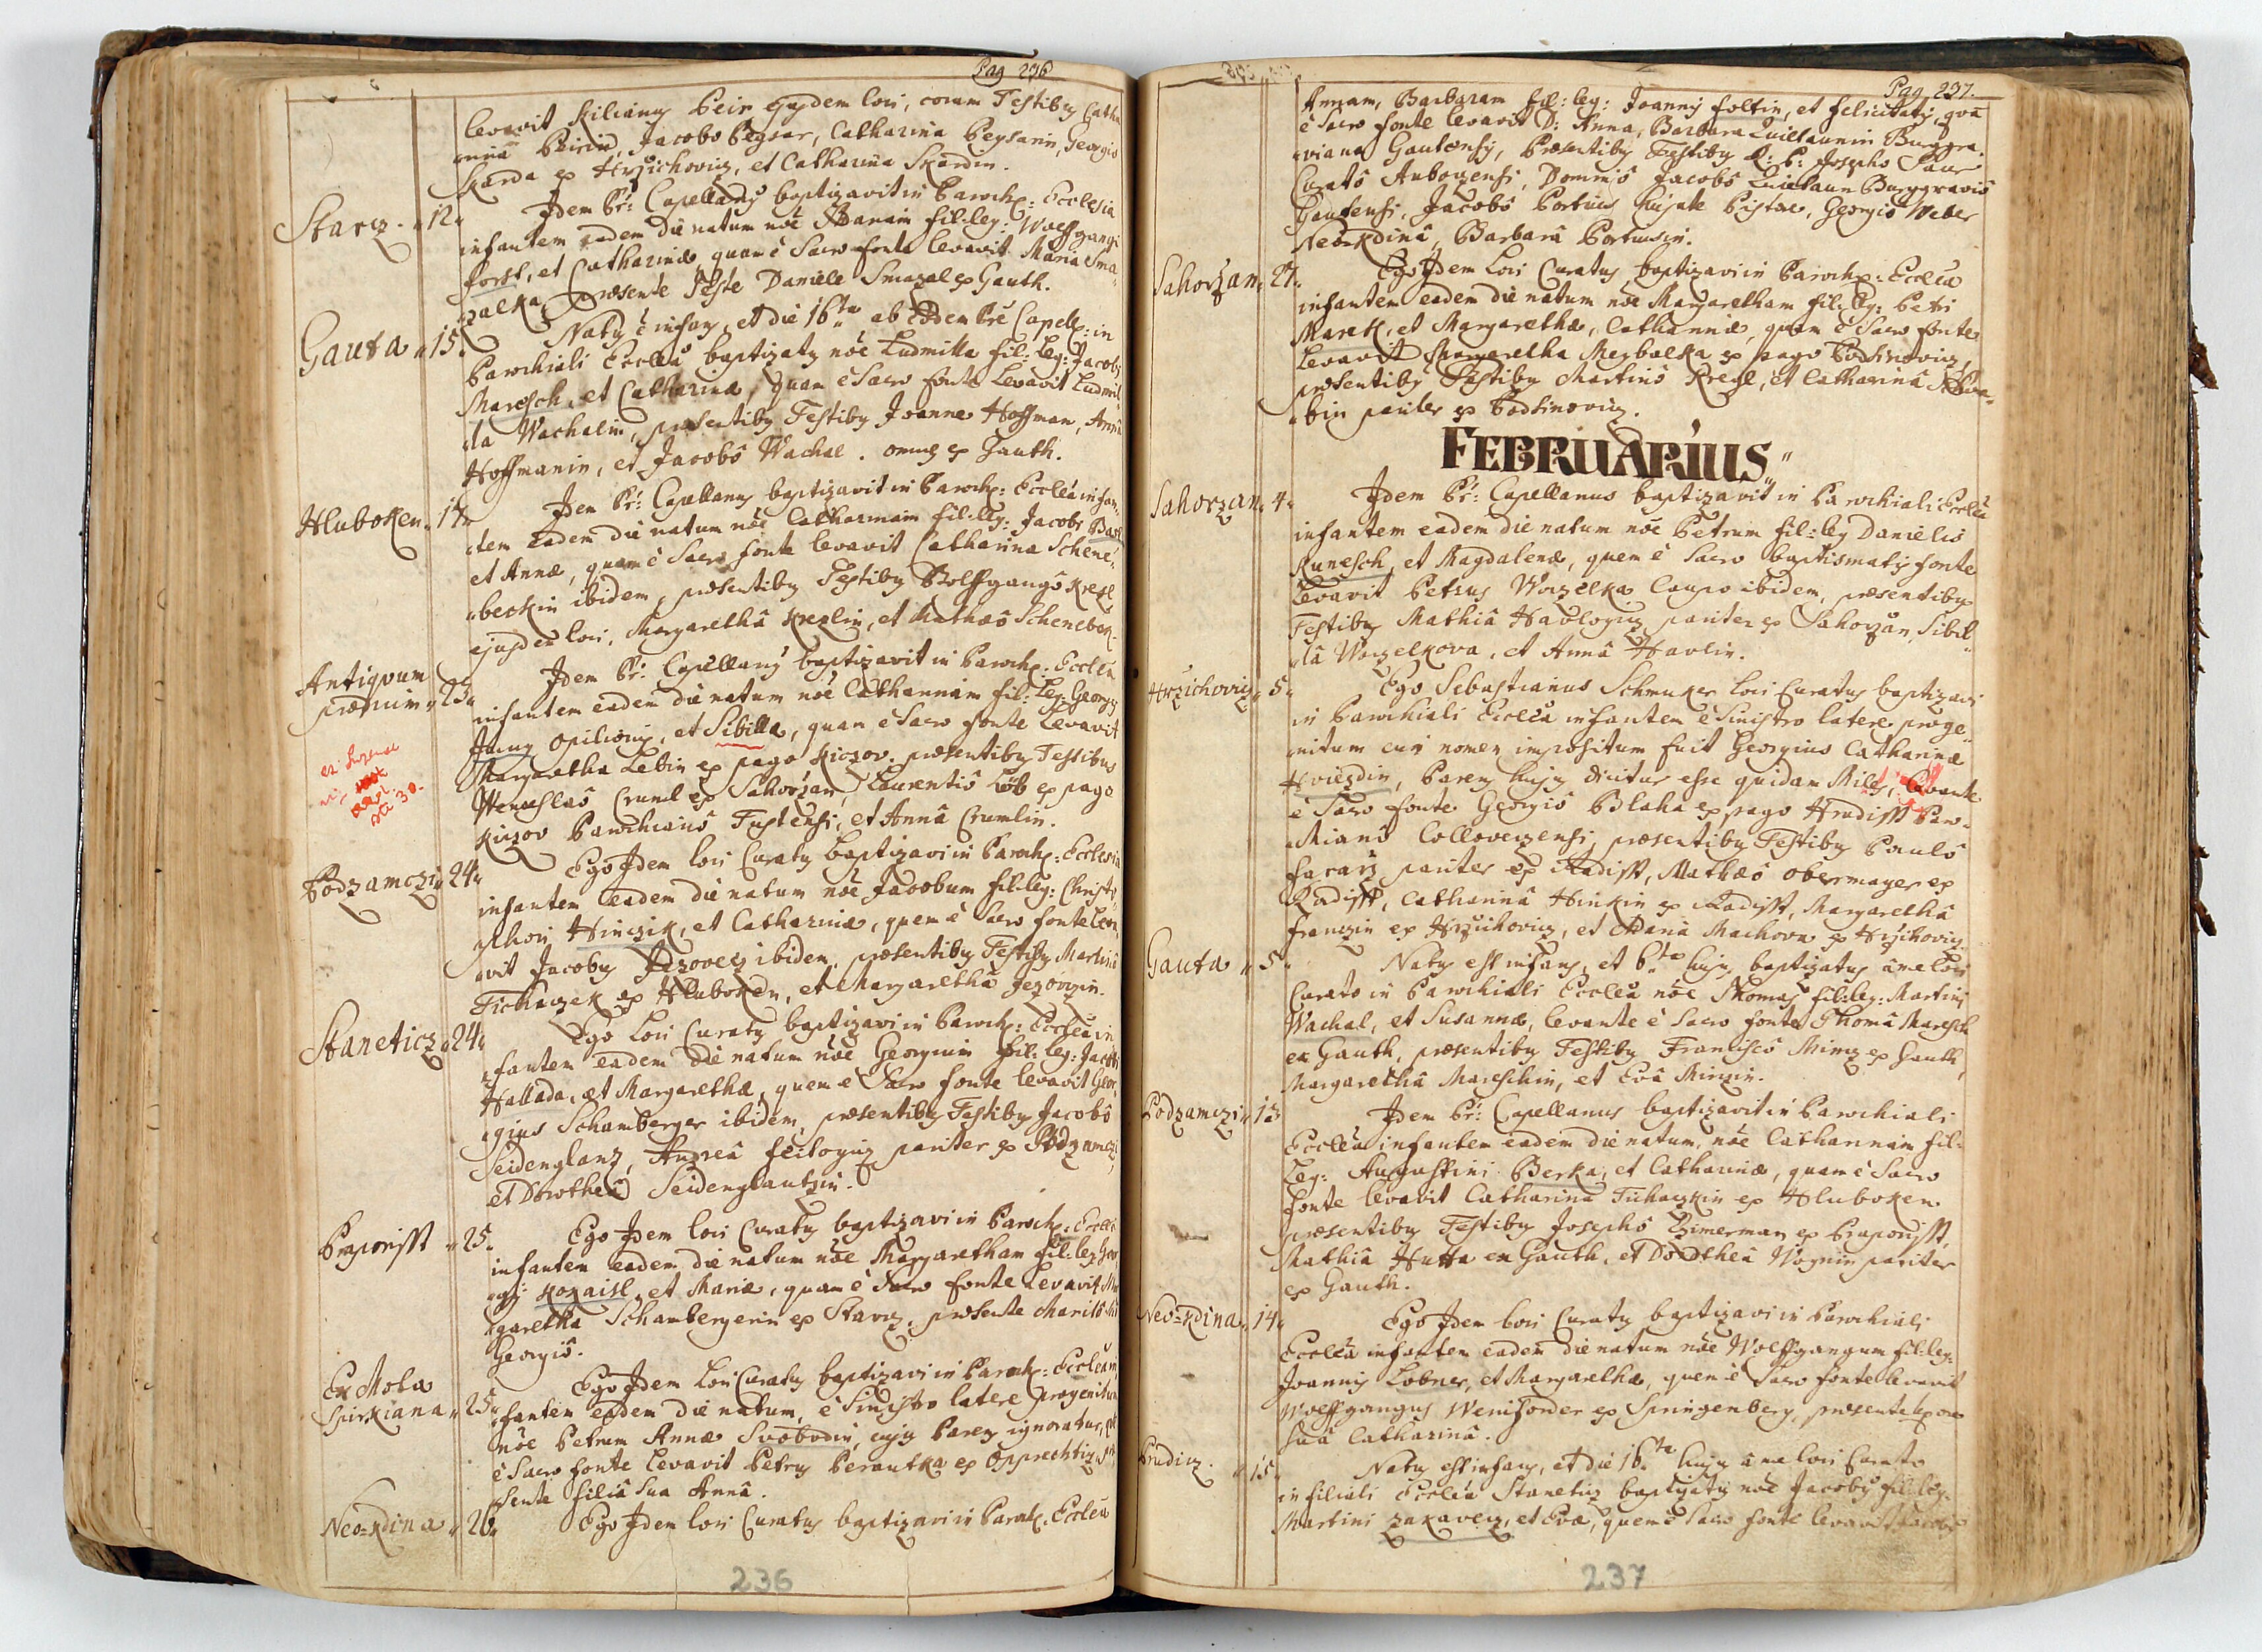 Pag 236
levavit Kilianus Beir ejusdem loci, coram Testibus Catha
rina Beirin, Jacobo Beysar, Catharina Beysarin, Georgio
Skarda ex Hrzichoviz, et Catharina Skardin.
Starz. 12. Idem Pr: Capellanus baptizavit in Paroch: Ecclesia
infantem eadem die natum nõe Annam fil: leg: Wolffgangi
forst, et Catharinæ, quam è Sacro fonte levavit Maria Sma
zalka, præsente Teste Daniele Smazal ex Gauth.
Gauta 15. Natus è infans, et die 16ta ab eodem Pre Capell: in
Parochiali Eccleâ baptizatus nõe Ludmilla fil: Leg: Jacobi
Maresch, et Catharinæ, quam è Sacro fonte Levavit Ludmil
la Wachalin, præsentibus Testibus Joanne Hoffman, Anna
Hoffmanin, et Jacobô Wachal. omnes ex Gauth.
Hluboken. 17. Idem Pr: Capellanus baptizavit in Paroch: Eccleâ infan
tem eadem die natum nõe Catharinam fil: leg: Jacobi
et Annæ, quam è Sacro fonte levavit Catharina Schene
beckin ibidem, præsentibus Testibus Wolffgangô Kregl
ejusdem loci, Margarethâ Kreglin, et Mathæô Schenebek.
Antiqvum
prædium 23. Idem Pr: Capellanus baptizavit in Paroch: Eccleâ
infantem eadem die natum nõe Catharinam fil: Leg: Georgij
Opilionis, et Sibilla, quam è Sacro fonte Levavit
Margaretha Lebin ex pago Kiczov. præsentibus Testibus
Wenceslaô Cruml ex Sahorzan, Laurentiô Löb ex pago
Kiczov Parochianô Tustensi, et Annâ Crumlin.
Podzamczi 24. Ego Idem loci Curatus baptizavi in Paroch: Ecclesia
infantem eadem die natum nõe Jacobum fil: leg: Christo
phori Hinczik, et Catharinæ, quem è Sacro fonte leva
vit Jacobus Jezovecz ibidem, præsentibus Testibus Martinô
Tichaczek ex Hluboken, et Margarethâ Jezovczin.
Staneticz 24. Ego Loci Curatus baptizavi in Paroch: Eccleâ in
fantem eadem die natum nõe Georgium fil: leg: Jacobi
Hallada, et Margarethæ, quem è Sacro fonte levavit Geor
gius Schamberger ibidem, præsentibus Testibus Jacobô
Seidenglanz, Andreâ feitogiz pariter ex Podzamczi,
et Dorotheâ Seidenglantzin.
Praporisst 25. Ego Idem loci Curatus baptizavi in Paroch: Eccleâ
infantem eadem die natum nõe Margaretham fil: leg: Geor
gij Kozaisl, et Mariæ, quam è Sacro fonte Levavit Mar
garetha Schambergerin ex Starz, præsente Maritô suô
Georgiô.
Ex Mola
Spirkiana 25. Ego Idem Loci Curatus baptizavi in Paroch: Eccleâ in
fantem eadem die natum, è Sinistro latere progenitum
nõe Petrum Annæ Svobodin, cujus Parens ignoratur,
è Sacro fonte levavit Petrus Perautka ex Opprechtiz, præ
sente filiâ Sua Annâ.
Neo-Kdina 26. Ego Idem loci Curatus baptizavi in Paroch: Eccleâ
236
Pag 237.
Annam, Barbaram fil: leg: Joannis foltin, et felicitatis, qvã
è Sacro fonte levavit D: Anna, Barbara Quietaunin Burggra
viana Gautensis, Præsentibus Testibus R: P: Josepho Saur
Curatô Auboczensi, Dominô Jacobô Quietaun Burggraviô
Gautensi, Jacobô Portius hujate Pistore, Georgiô Weber
Neo-Kdinâ, Barbarâ Portiusin.
Sahorzan. 27. Ego Idem Loci Curatus baptizavi in Paroch: Eccleâ
infantem eadem die natum nõe Margaretham fil: leg: Petri
Marek, et Margarethæ, Catharinæ, quam è Sacro fonte
Levavit Margaretha Meybalka ex pago Podhinoviz,
præsentibus Testibus Martinô Kregl, et Catharinâ
bin pariter ex Podhinoviz.
FEBRUARIUS
Sahorzan. 4. Idem Pr: Capellanus baptizavit in Parochiali Eccleâ
infantem eadem die natum nõe Petrum fil: leg Danielis
Kunesch, et Magdalenæ, quem è Sacro baptismatis fonte
Levavit Petrus Worzelka Caupo ibidem, præsentibus
Testibus Mathiâ Havlogiz, pariter ex Sahorzan, Sibil
lâ Worzelkova, et Annâ Havlin.
Hrzichoviz. 5. Ego Sebastianus Schmuker loci Curatus baptizavi
in Parochiali Eccleâ infantem è Sinistro latere proge
nitum cui nomen impositum fuit Georgius Catharinæ
Hviezdin, Parens hujus dicitur esse quidam Miles, Levante
è Sacro fonte Georgiô Blaha ex pago Hradisst Paro
chianô Colloveczensi, præsentibus Testibus Paulô
faraiz pariter ex Hradisst, Mathæô Obermayer ex
Hradisst, Catharinâ Hinkin ex Hradisst, Margarethâ
franczin ex Hrzichoviz, et Mariâ Machova ex Hrzichoviz.
Gauta 5. Natus est infans, et 6ta hujus baptizatus â me Loci
Curato in Parochiali Eccleâ nõe Thomas fil: leg: Martini
Wachal, et Susannæ, levante è Sacro fonte Thomâ Maresch
ex Gauth, præsentibus Testibus Franciscô Mincz ex Gauth,
Margarethâ Mareschin, et Evâ Minczin.
Podzamczi 13. Idem Pr: Capellanus baptizavit in Parochiali
Eccleâ infantem eadem die natum, nõe Catharinam fil:
Leg: Augustini Berka, et Catharinæ, quam è Sacro
fonte levavit Catharina Tichaczkin ex Hluboken.
præsentibus Testibus Josephô Zimerman ex Praporisst,
Mathiâ Hutta ex Gauth, et Dorotheâ Woznin pariter
ex Gauth.
Neo-Kdina. 14. Ego Idem loci Curatus baptizavi in Parochiali
Eccleâ infantem eadem die natum nõe Wolffgangum fil: leg:
Joannis Lobner, et Margarethæ, quem è Sacro fonte levavit
Wolffgangus Weniforder ex Springenberg, præsente Uxore
suâ Catharinâ.
Prudiz. 15. Natus est infans, et die 16ta hujus â me loci Curato
in filiali Eccleâ Stanetiz baptizatus nõe Jacobus fil: leg:
Martini Zakavecz, et Evæ, quem è Sacro fonte levavit Jacobus
237